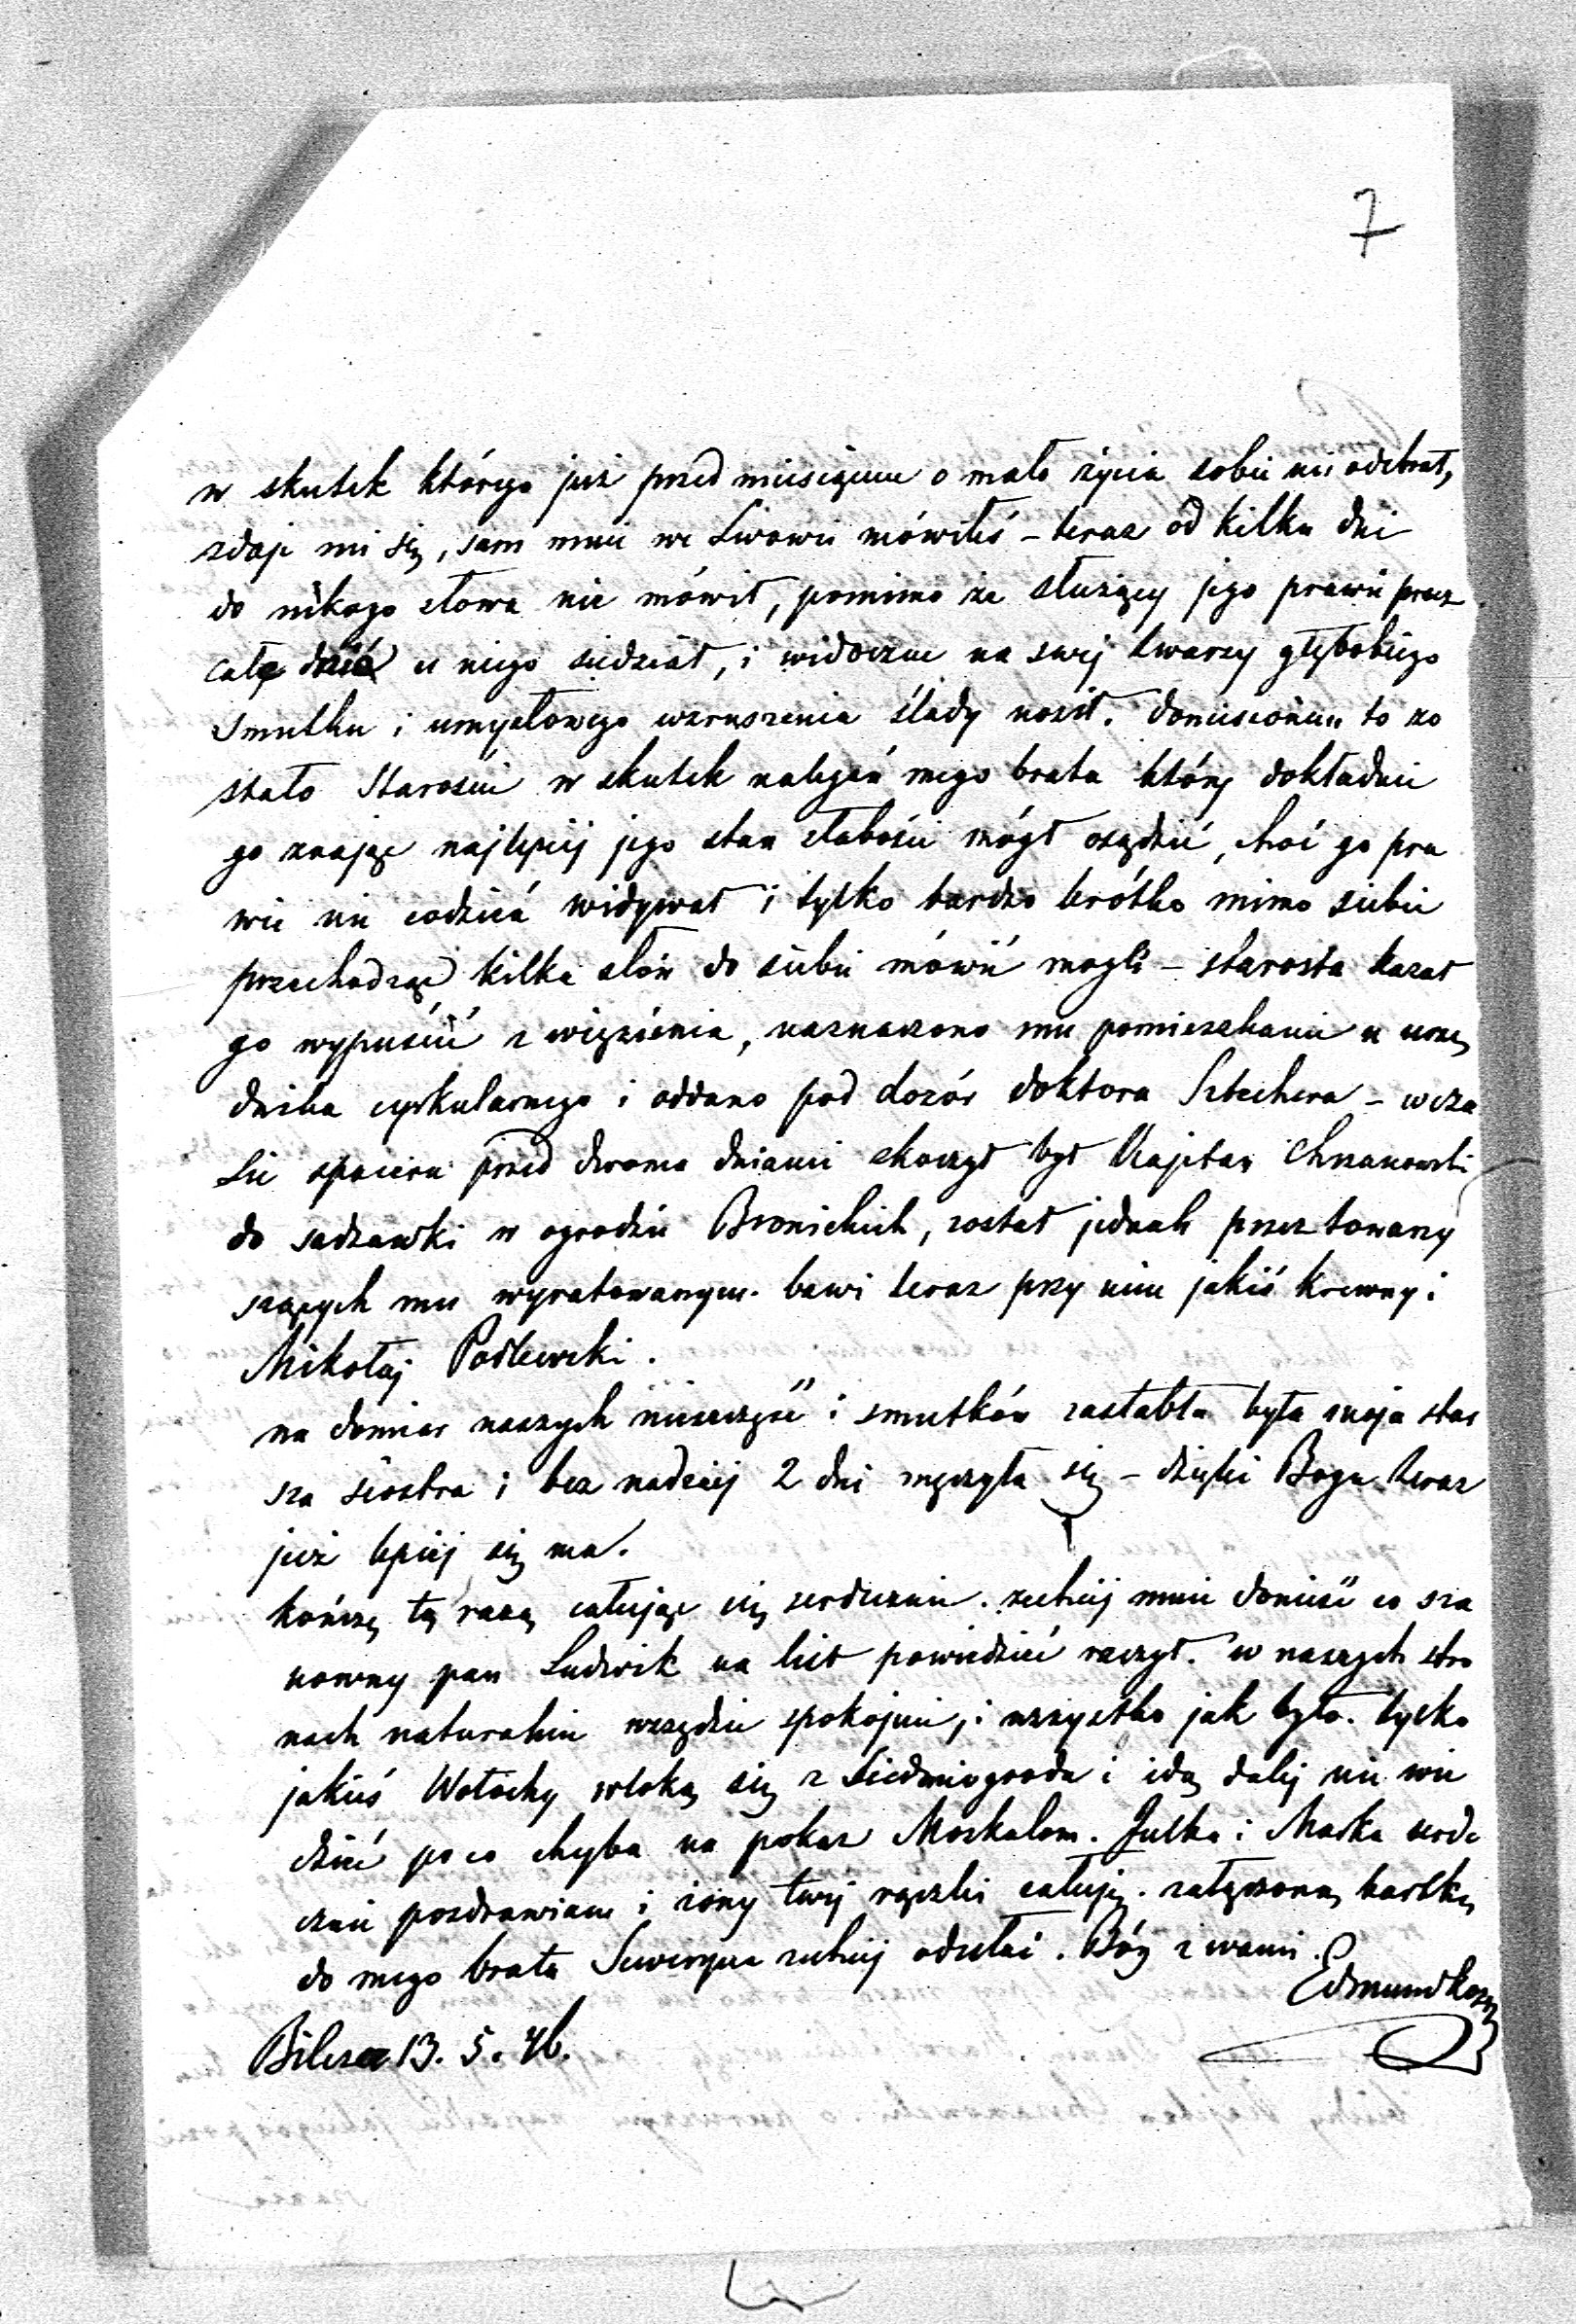 7
w skutek którego już przed miesiącem o mało życia sobie nie odebrał,
zdaje mi się, sam mnie we Lwowie mówiłeś – teraz od kilku dni
do nikogo słowa nie mówił, pomimo że służący jego prawie przez
całe dnie u niego siedział, i widoczne na swej twarzy głębokiego
smutku i umysłowego wzruszenia ślady nosił. doniesionem to zo
stało Staroście w skutek nalegań mego brata który dokładnie
go znając najlepiej jego stan słabości mógł osądzić, choć go pra
wie nie codzień widywał i tylko bardzo krótko mimo siebie
przechodząc kilka słów do siebie mówić mogli – starosta kazał
go wypuścić z więzienia, naznaczono mu pomieszkanie u urzę
dnika cyrkularnego i oddano pod dozór doktora Sztechera – w cza
sie spaceru przed dwoma dniami skoczył był Kajetan Chrzanowski
do sadzawki w ogrodzie Bronickich, został jednak przez towarzy
szących mu wyratowanym. bawi teraz przy nim jakiś krewny i
Mikołaj Podlewski.
na domiar naszych nieszczęść i smutków zasłabła była moja star
sza siostra i bez nadziej 2 dni męczyła się – dzięki Bogu teraz
już lepiej się ma.
kończę tą razą całując cię serdecznie. zechciej mnie donieść co sza
nowny pan Ludwik na list powiedzieć raczył. w naszych stro
nach naturalnie wszędzie spokojnie, i wszystko jak było. tylko
jakieś Wołochy wloką się z Siedmiogroda i idą dalej nie wie
dzieć po co chyba na pokaz Moskalom. Julka i Marka serde
cznie pozdrawiam i żony twej rączki całuję. załączoną kartkę
do mego brata Seweryna zechciej odesłać. Bóg z wami.
Edmund
Bilcze 13. 5. 46.